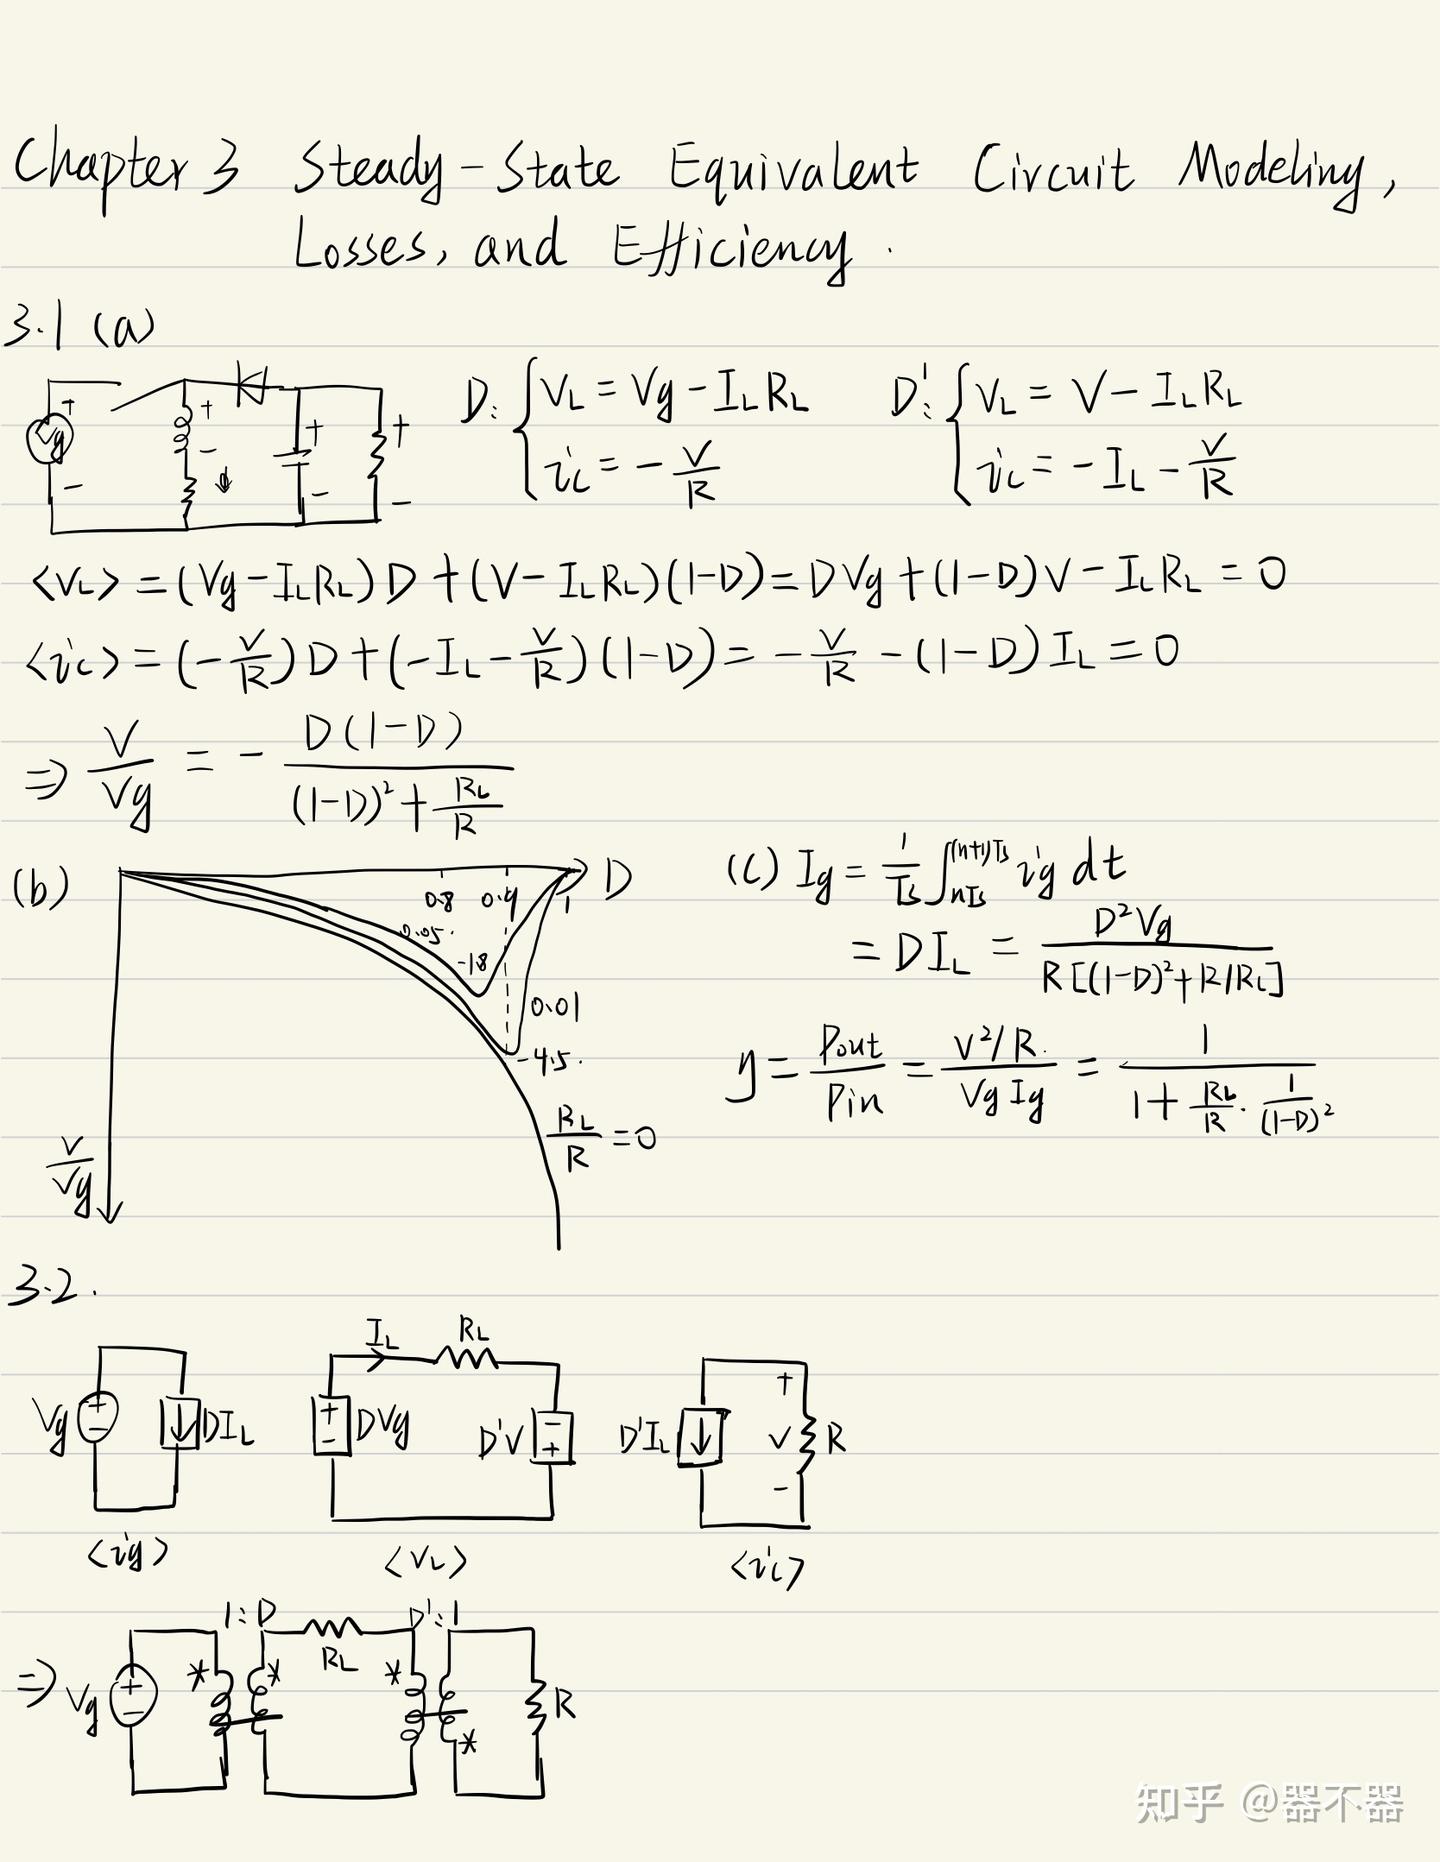 Chapter 3 Steady-State Equivalent Circuit Modeling,
Losses, and Efficiency.
3.1 (a)
Vg + - + - + - + -
D: { VL = Vg - ILRL
ic = - V/R
D': { VL = V - ILRL
ic = - IL - V/R
<VL> = (Vg-ILRL)D + (V-ILRL)(1-D) = DVg + (1-D)V - ILRL = 0
<ic> = (-V/R)D + (-IL-V/R)(1-D) = -V/R - (1-D)IL = 0
⇒ V/Vg = - D(1-D) / ((1-D)² + RL/R)
(b)
D
0.8 0.9 1
0.05
-1.8
0.01
-4.5.
RL/R = 0
V/Vg
(C) Ig = 1/Ts ∫nTs^(n+1)Ts ig dt
= DIL = D²Vg / R[(1-D)²+R/RL]
η = Pout/Pin = V²/R / VgIg = 1 / (1 + RL/R · 1/(1-D)²)
3.2.
Vg + - DIL
<ig>
IL RL
+ - DVg D'V - +
<VL>
D'IL + V - R
<ic>
⇒ Vg + - 1:D * * RL D':1 * * R
知乎 @器不器